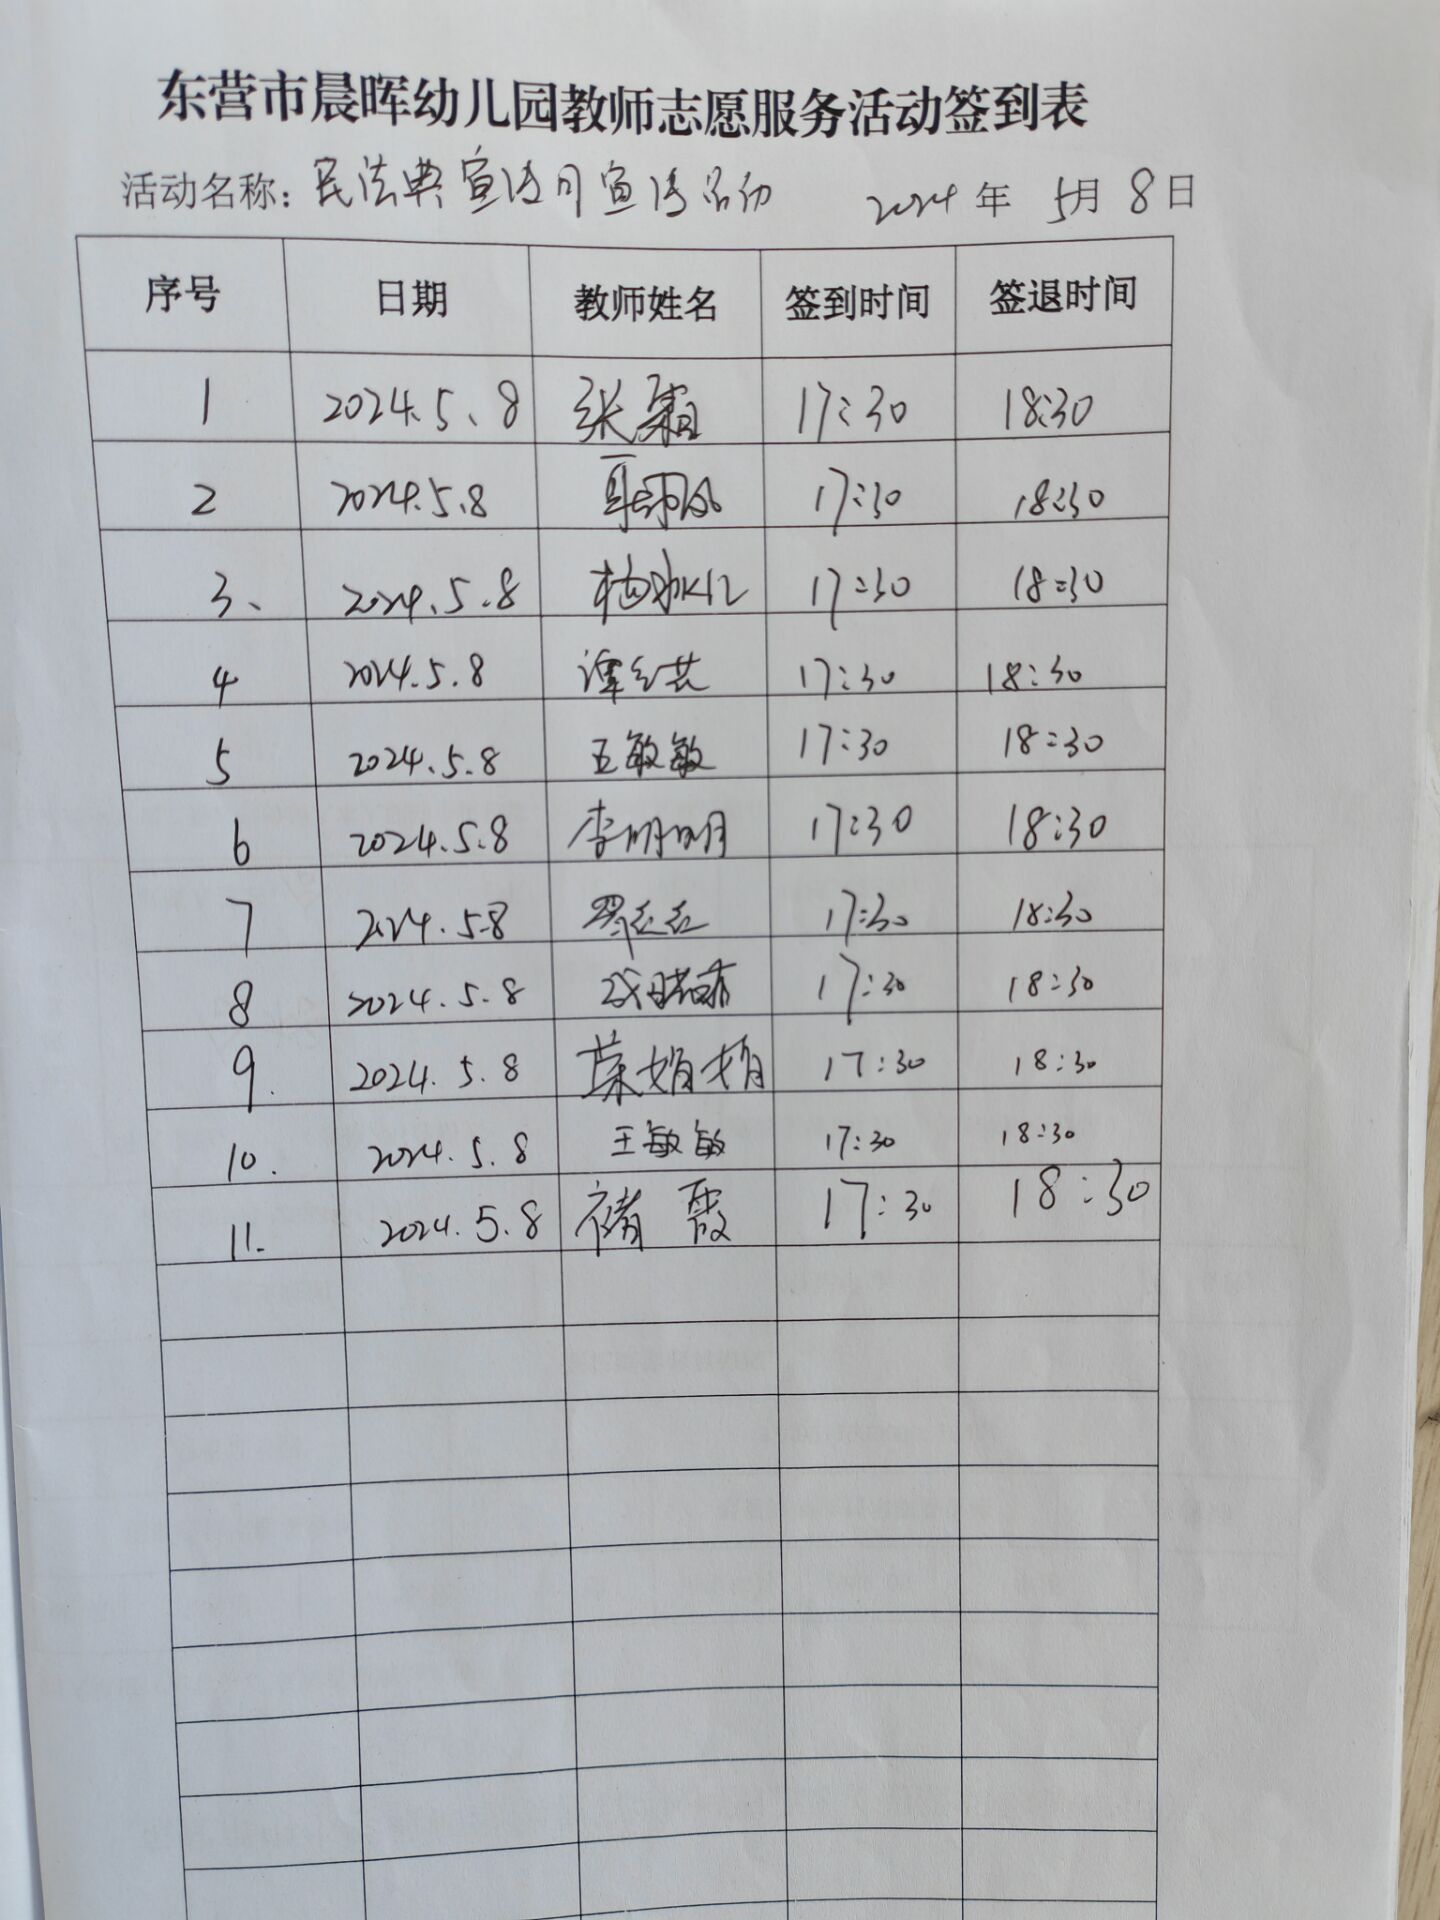 东营市晨晖幼儿园教师志愿服务活动签到表
活动名称：民法典宣传月宣传活动 2024年 5月 8日
序号 日期 教师姓名 签到时间 签退时间
1 2024.5.8 张霜 17:30 18:30
2 2024.5.8 17:30 18:30
3、 2024.5.8 17:30 18:30
4 2024.5.8 17:30 18:30
5 2024.5.8 王敏敏 17:30 18:30
6 2024.5.8 李明明 17:30 18:30
7 2024.5.8 17:30 18:30
8 2024.5.8 17:30 18:30
9. 2024.5.8 17:30 18:30
10. 2024.5.8 王敏敏 17:30 18:30
11. 2024.5.8 褚霞 17:30 18:30